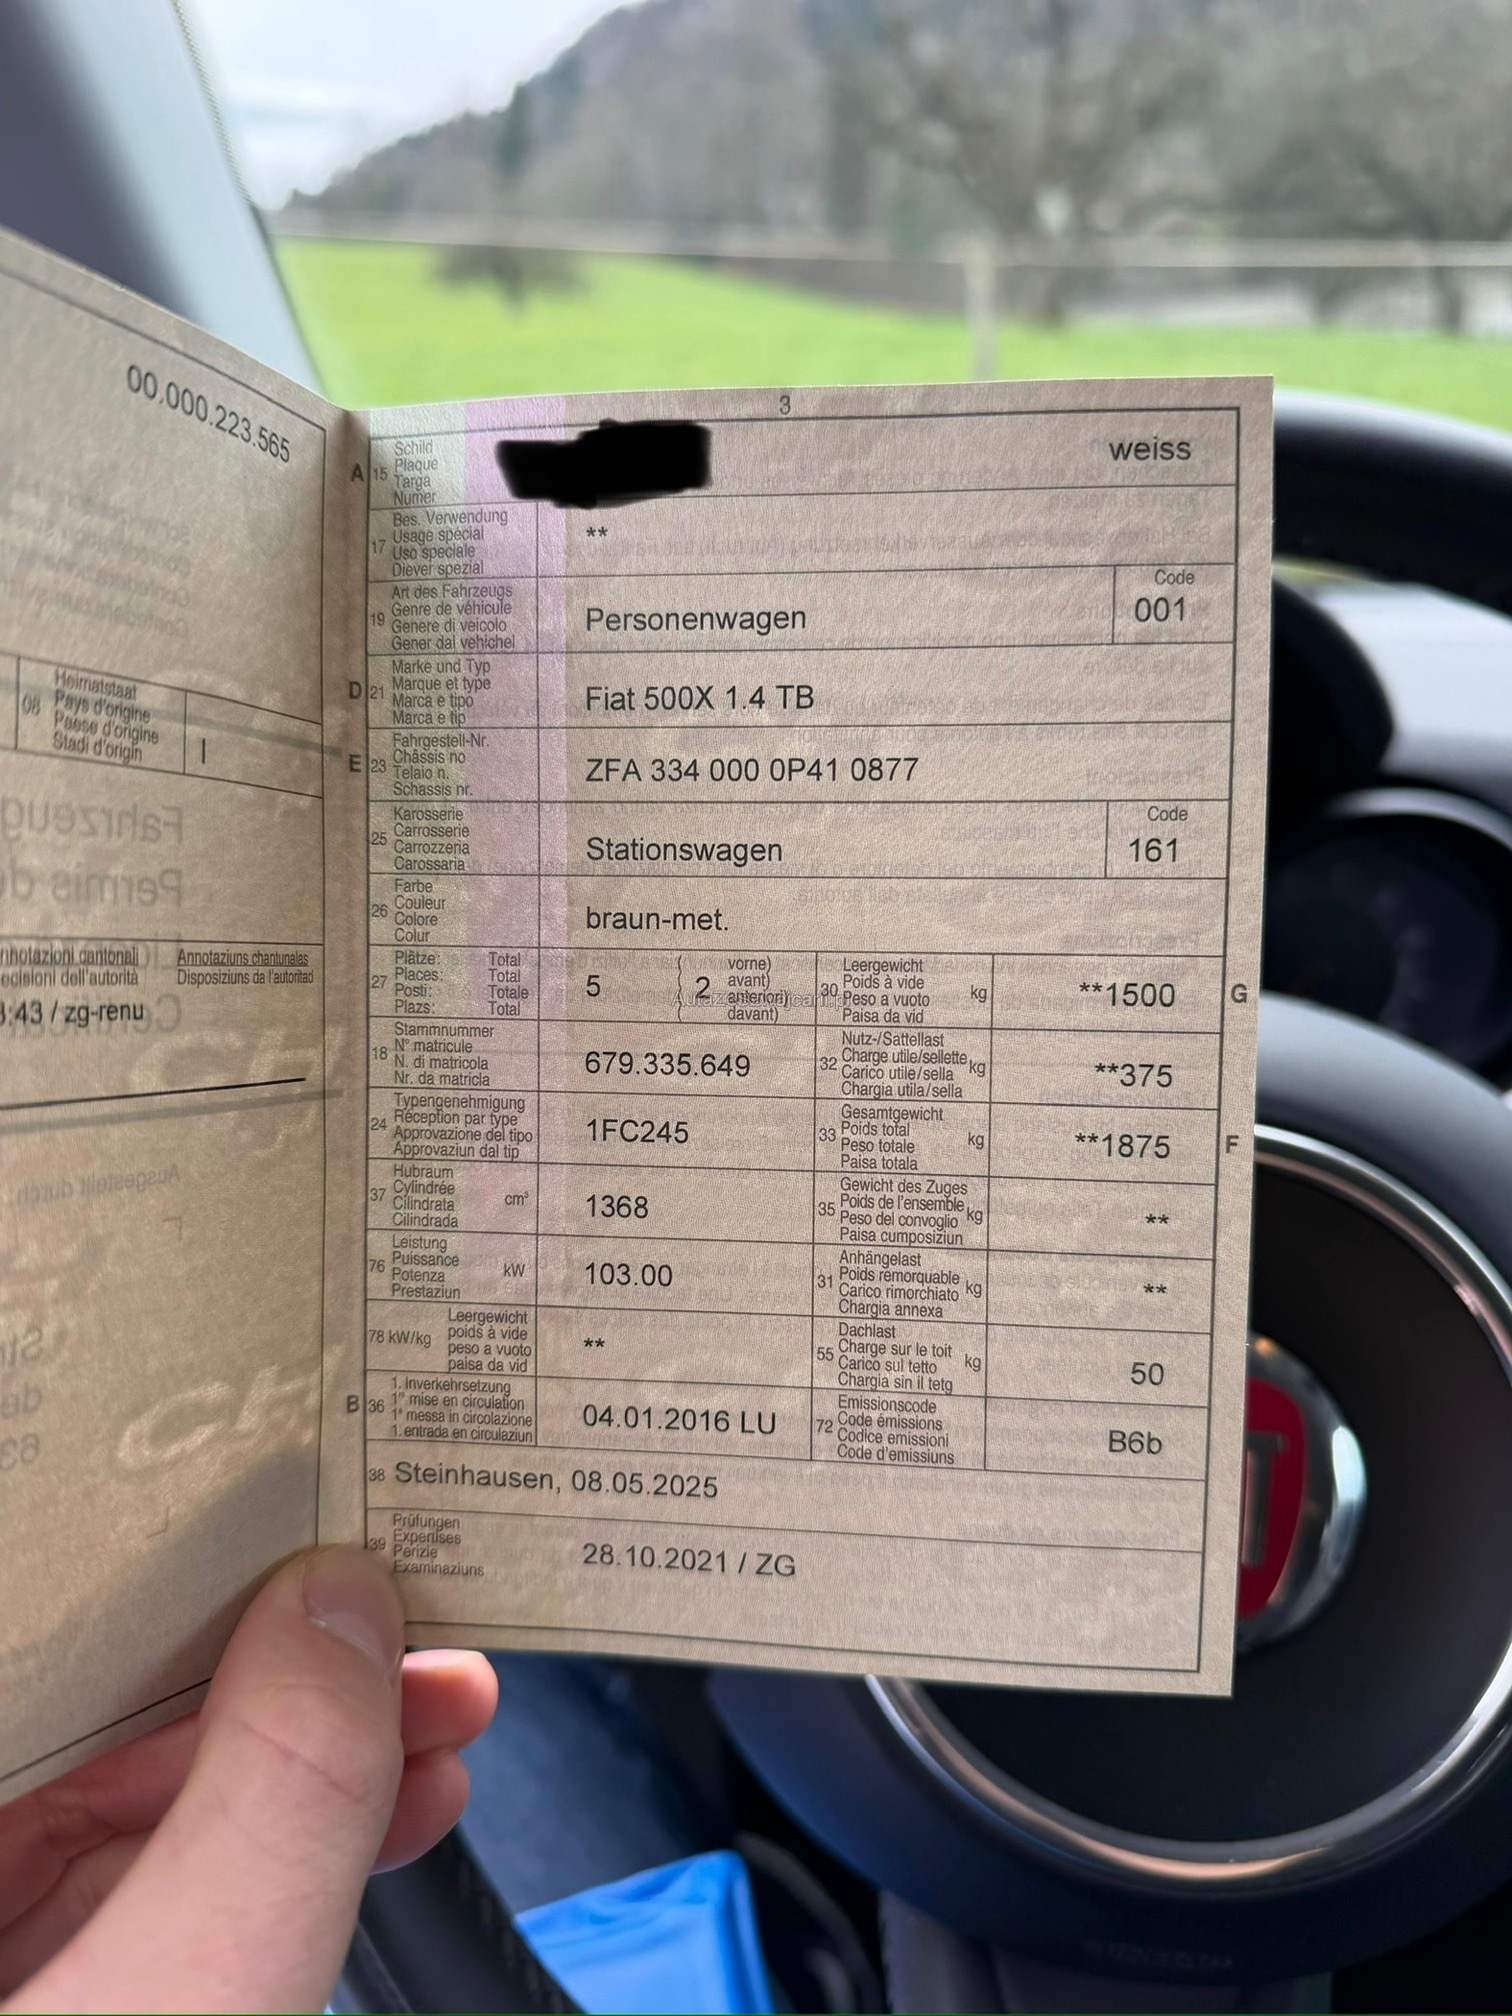 00.000.223.565
08 Heimatstaat
Pays d'origine
Paese d'origine
Stadi d'origin
I
Annotaziuns chantunalas
Disposiziuns da l'autoritad
/ zg-renu
3
A 15 Schild
Plaque
Targa
Numer
weiss
17 Bes. Verwendung
Usage spécial
Uso speciale
Diever spezial
**
19 Art des Fahrzeugs
Genre de véhicule
Genere di veicolo
Gener dal vehichel
Personenwagen
Code
001
D 21 Marke und Typ
Marque et type
Marca e tipo
Marca e tip
Fiat 500X 1.4 TB
E 23 Fahrgestell-Nr.
Châssis no
Telaio n.
Schassis nr.
ZFA 334 000 0P41 0877
25 Karosserie
Carrosserie
Carrozzeria
Carossaria
Stationswagen
Code
161
26 Farbe
Couleur
Colore
Colur
braun-met.
27 Plätze: Total
Places: Total
Posti: Totale
Plazs: Total
5
2
vorne)
avant)
anteriori)
davant)
30 Leergewicht
Poids à vide
Peso a vuoto
Paisa da vid
kg
**1500
G
18 Stammnummer
N° matricule
N. di matricola
Nr. da matricla
679.335.649
32 Nutz-/Sattellast
Charge utile/sellette
Carico utile/sella
Chargia utila/sella
kg
**375
24 Typengenehmigung
Réception par type
Approvazione del tipo
Approvaziun dal tip
1FC245
33 Gesamtgewicht
Poids total
Peso totale
Paisa totala
kg
**1875
F
37 Hubraum
Cylindrée
Cilindrata
Cilindrada
cm³
1368
35 Gewicht des Zuges
Poids de l'ensemble
Peso del convoglio
Paisa cumposiziun
kg
**
76 Leistung
Puissance
Potenza
Prestaziun
kW
103.00
31 Anhängelast
Poids remorquable
Carico rimorchiato
Chargia annexa
kg
**
78 kW/kg
Leergewicht
poids à vide
peso a vuoto
paisa da vid
**
55 Dachlast
Charge sur le toit
Carico sul tetto
Chargia sin il tetg
kg
50
B 36 1. Inverkehrsetzung
1re mise en circulation
1a messa in circolazione
1. entrada en circulaziun
04.01.2016 LU
72 Emissionscode
Code émissions
Codice emissioni
Code d'emissiuns
B6b
38 Steinhausen, 08.05.2025
39 Prüfungen
Expertises
Perizie
Examinaziuns
28.10.2021 / ZG